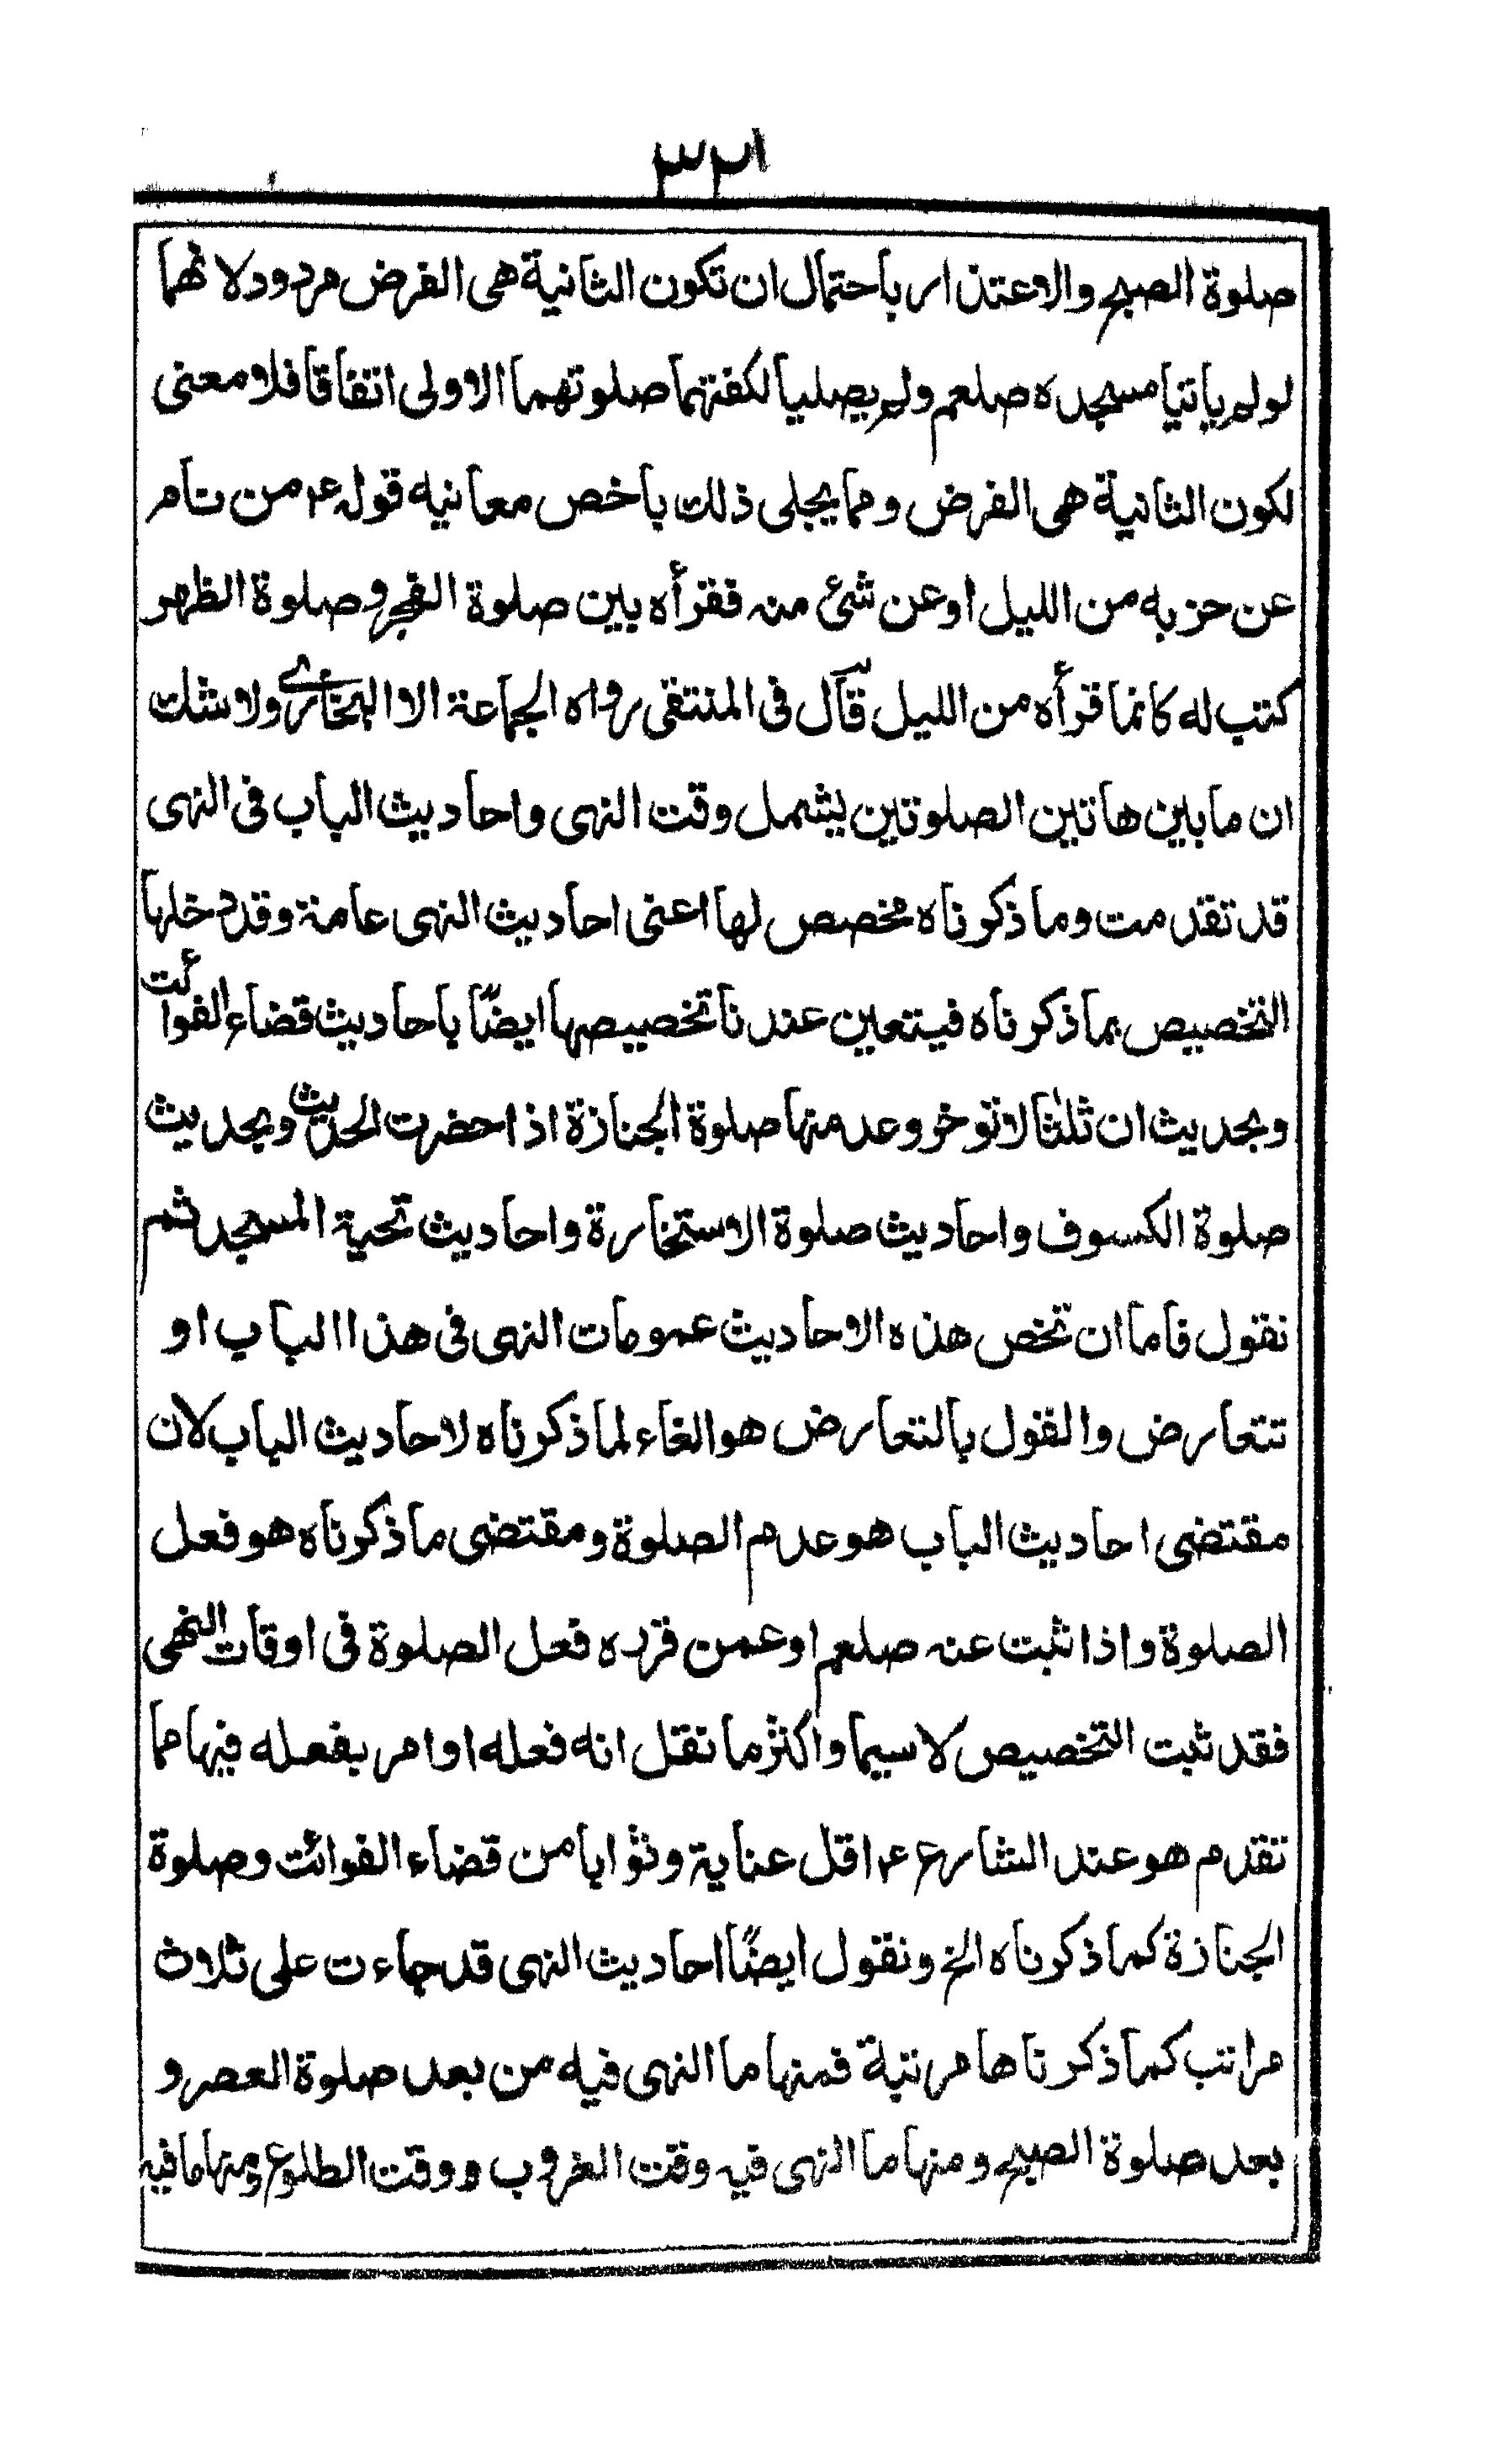 ٣٢١
صلوة الصبح والاعتذار باحتمال ان تكون الثانية هى الفرض مردود لانهما
لو لم ياتيا مسجده صلعم ولم يصليا لكفتهما صلوتهما الاولى اتفاقا فلا معنى
لكون الثانية هى الفرض ومما يجلى ذلك باخص معانيه قوله عم من نام
عن حزبه من الليل او عن شئ منه فقرأه بين صلوة الفجر وصلوة الظهر
كتب له كانما قرأه من الليل قال فى المنتقى رواه الجماعة الا البخارى ولا شك
ان ما بين هاتين الصلوتين يشمل وقت النهى واحاديث الباب فى النهى
قد تقدمت وما ذكرناه مخصص لها اعنى احاديث النهى عامة وقد دخلها
التخصيص بما ذكرناه فيتعين عندنا تخصيصها ايضًا باحاديث قضاء الفوائت
وبحديث ان ثلثا لا توخر وعد منها صلوة الجنازة اذا حضرت الحديث وبحديث
صلوة الكسوف واحاديث صلوة الاستخارة واحاديث تحية المسجد ثم
نقول فاما ان تخص هذه الاحاديث عمومات النهى فى هذا الباب او
تتعارض والقول بالتعارض هو الغاء لما ذكرناه لاحاديث الباب لان
مقتضى احاديث الباب هو عدم الصلوة ومقتضى ما ذكرناه هو فعل
الصلوة واذا ثبت عنه صلعم او عمن قرره فعل الصلوة فى اوقات النهى
فقد ثبت التخصيص لا سيما واكثر ما نقل انه فعله او امر بفعله فيها مما
تقدم هو عند الشارع عم اقل عناية وثوابا من قضاء الفوائت وصلوة
الجنازة كما ذكرناه الخ ونقول ايضًا احاديث النهى قد جاءت على ثلاث
مراتب كما ذكرناها مرتبة فمنها ما النهى فيه من بعد صلوة العصر و
بعد صلوة الصبح ومنها ما النهى فيه وقت الغروب ووقت الطلوع ومنها ما فيه